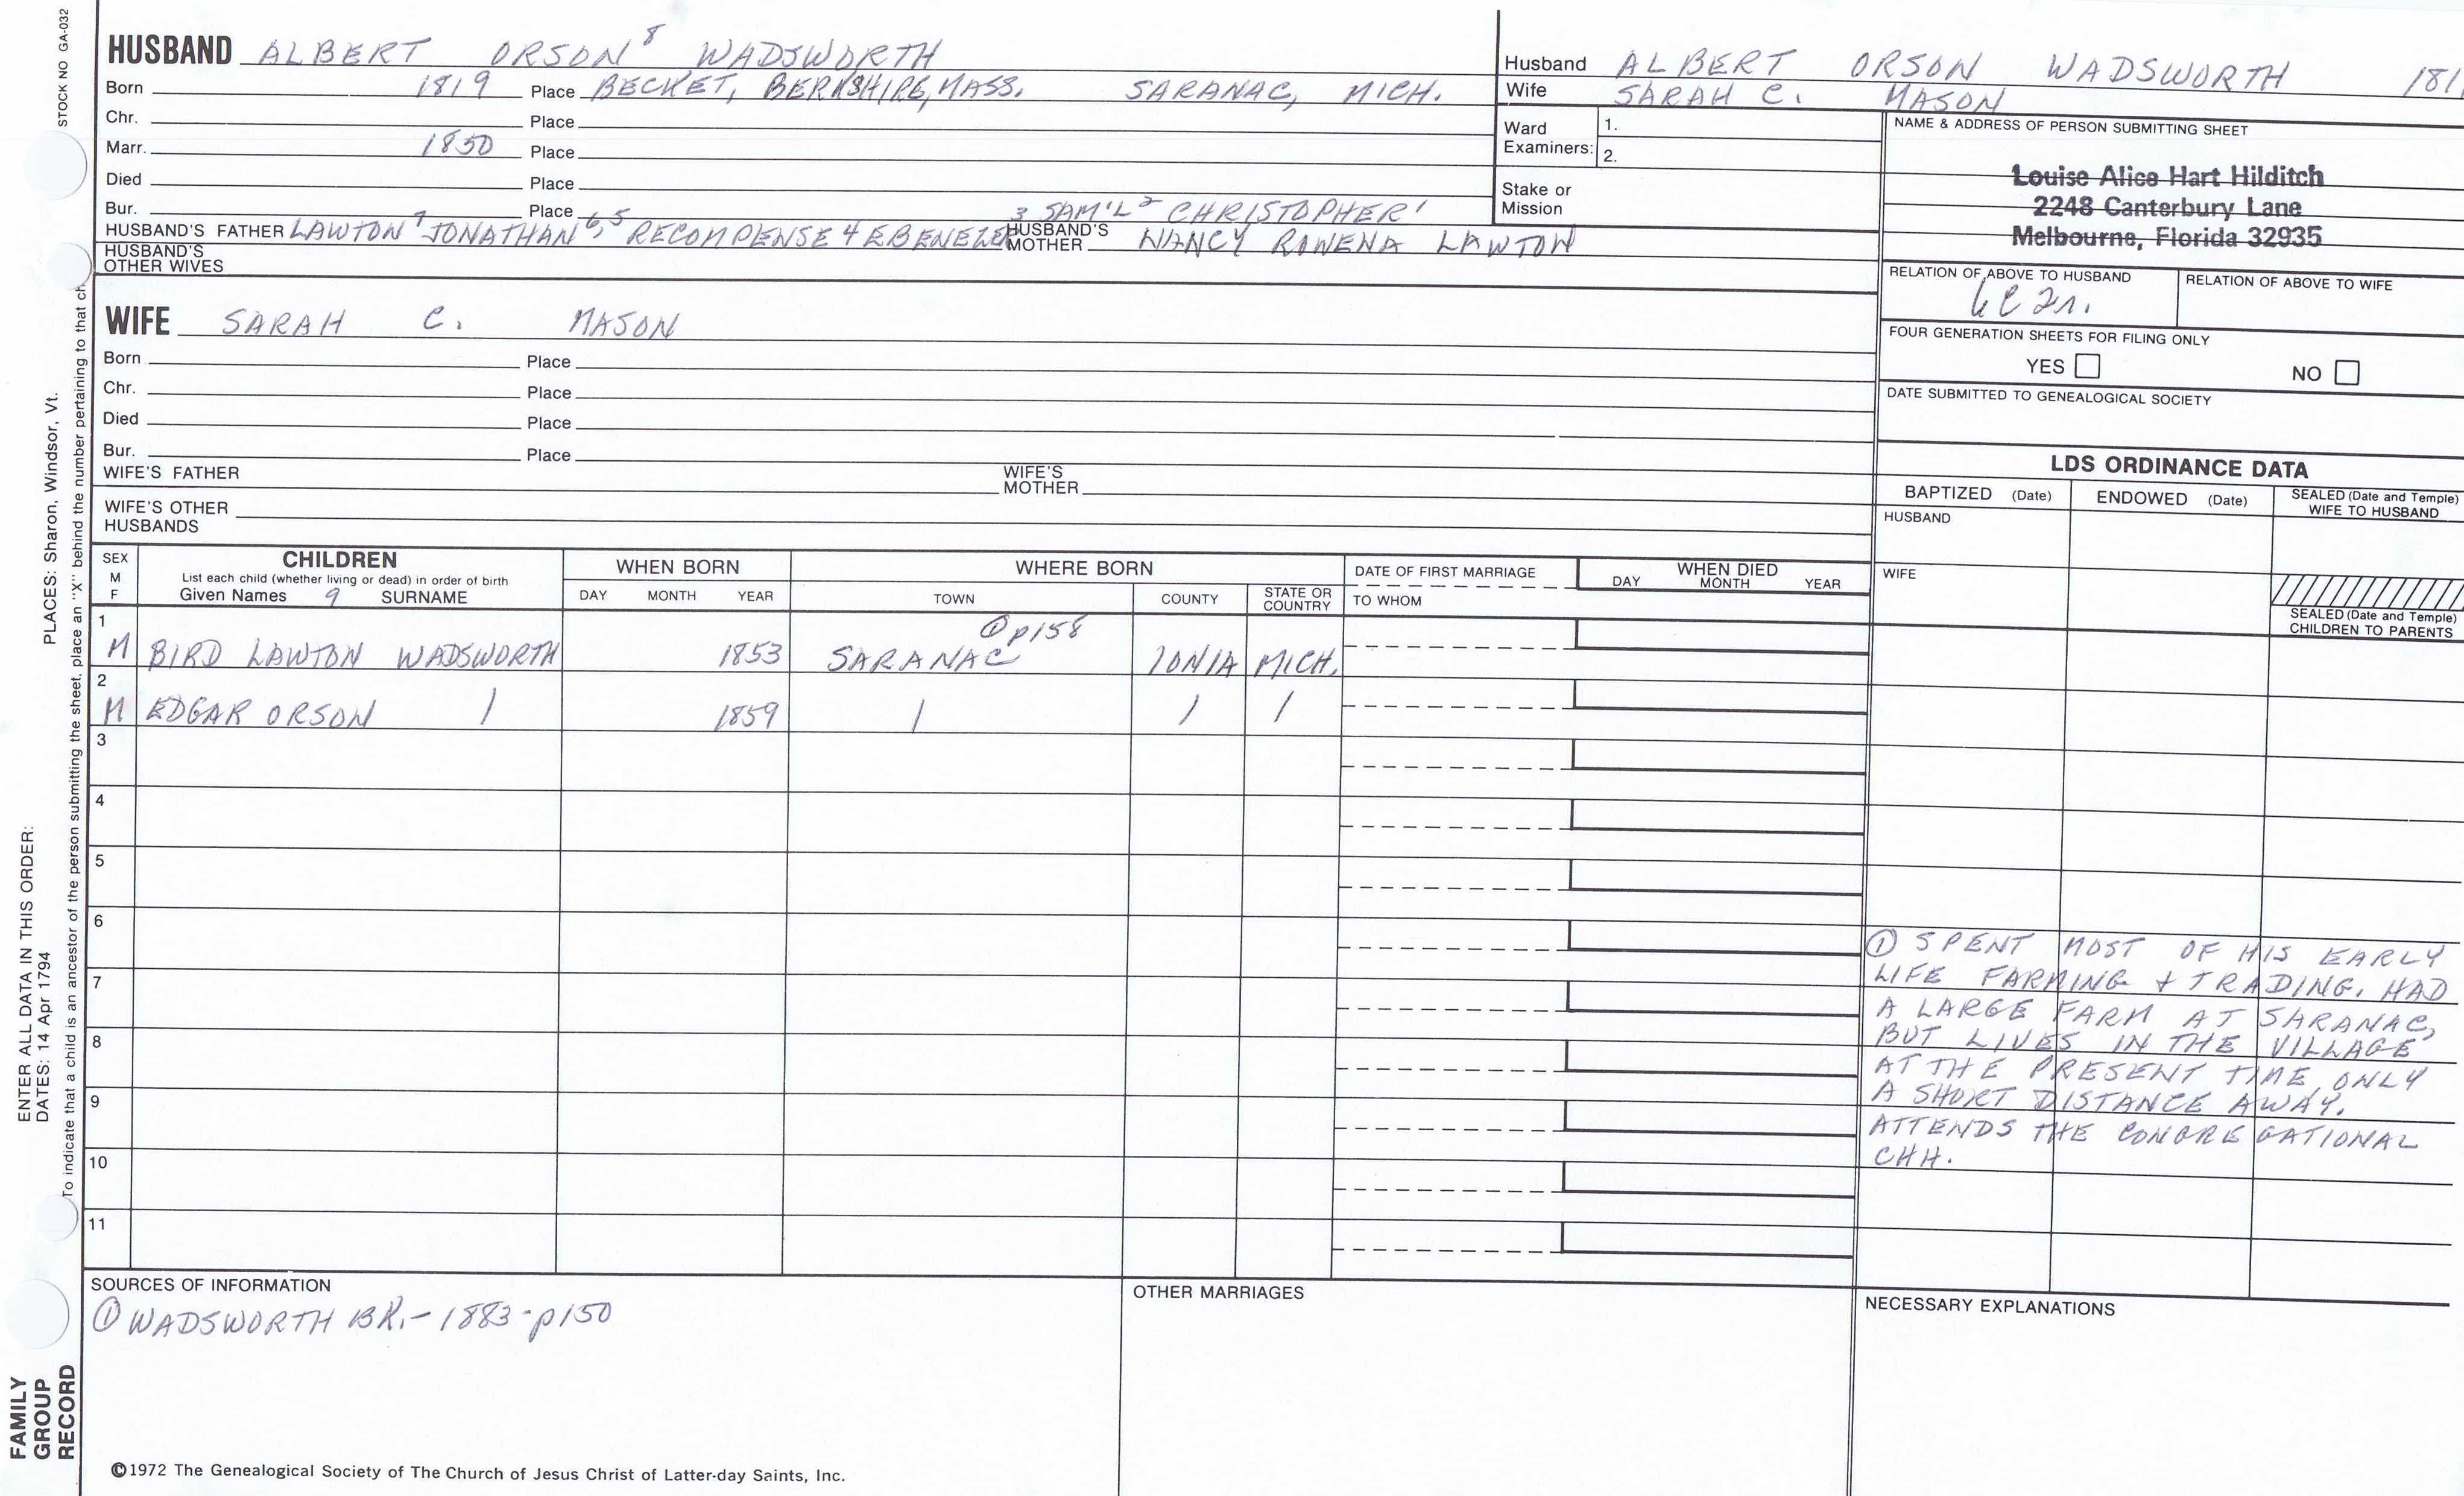 STOCK NO GA-032
HUSBAND ALBERT ORSON 8 WADSWORTH
Born 1819 Place BECKET, BERKSHIRE, MASS. SARANAC, MICH.
Chr. Place
Marr. 1850 Place
Died Place
Bur. Place
3 SAM'L 2 CHRISTOPHER 1
HUSBAND'S FATHER LAWTON 7 JONATHAN 6, 5 RECOMPENSE 4 EBENEZER HUSBAND'S MOTHER NANCY ROWENA LAWTON
HUSBAND'S OTHER WIVES
WIFE SARAH C. MASON
Born Place
Chr. Place
Died Place
Bur. Place
WIFE'S FATHER WIFE'S MOTHER
WIFE'S OTHER HUSBANDS
Husband ALBERT ORSON WADSWORTH 181
Wife SARAH C. MASON
Ward Examiners: 1. 2.
Stake or Mission
NAME & ADDRESS OF PERSON SUBMITTING SHEET
Louise Alice Hart Hilditch
2248 Canterbury Lane
Melbourne, Florida 32935
RELATION OF ABOVE TO HUSBAND RELATION OF ABOVE TO WIFE
FOUR GENERATION SHEETS FOR FILING ONLY
YES NO
DATE SUBMITTED TO GENEALOGICAL SOCIETY
LDS ORDINANCE DATA
BAPTIZED (Date) ENDOWED (Date) SEALED (Date and Temple) WIFE TO HUSBAND
HUSBAND
WIFE
SEALED (Date and Temple) CHILDREN TO PARENTS
SEX M F
CHILDREN
List each child (whether living or dead) in order of birth
Given Names 9 SURNAME
WHEN BORN
DAY MONTH YEAR
WHERE BORN
TOWN COUNTY STATE OR COUNTRY
DATE OF FIRST MARRIAGE
TO WHOM
WHEN DIED
DAY MONTH YEAR
① p158
1 M BIRD LAWTON WADSWORTH 1853 SARANAC IONIA MICH.
2 M EDGAR ORSON / 1859 / / /
3
4
5
6
7
8
9
10
11
① SPENT MOST OF HIS EARLY
LIFE FARMING + TRADING. HAD
A LARGE FARM AT SARANAC,
BUT LIVES IN THE VILLAGE
AT THE PRESENT TIME, ONLY
A SHORT DISTANCE AWAY.
ATTENDS THE CONGREGATIONAL
CHH.
SOURCES OF INFORMATION
① WADSWORTH BK. - 1883 - p150
OTHER MARRIAGES
NECESSARY EXPLANATIONS
©1972 The Genealogical Society of The Church of Jesus Christ of Latter-day Saints, Inc.
FAMILY
GROUP
RECORD
ENTER ALL DATA IN THIS ORDER:
DATES: 14 Apr 1794 PLACES: Sharon, Windsor, Vt.
To indicate that a child is an ancestor of the person submitting the sheet, place an "X" behind the number pertaining to that ch